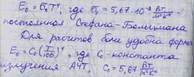 E₀ = C₀T⁴, где C₀ = 5,67·10⁻⁸ Вт/м²·К⁴ –
постоянная Стефана-Больцмана
Для расчетов более удобна форма
E₀ = C₀(T/100)⁴, где C₀ - константа
излучения АЧТ, C₀ = 5,67 Вт/м²·К⁴